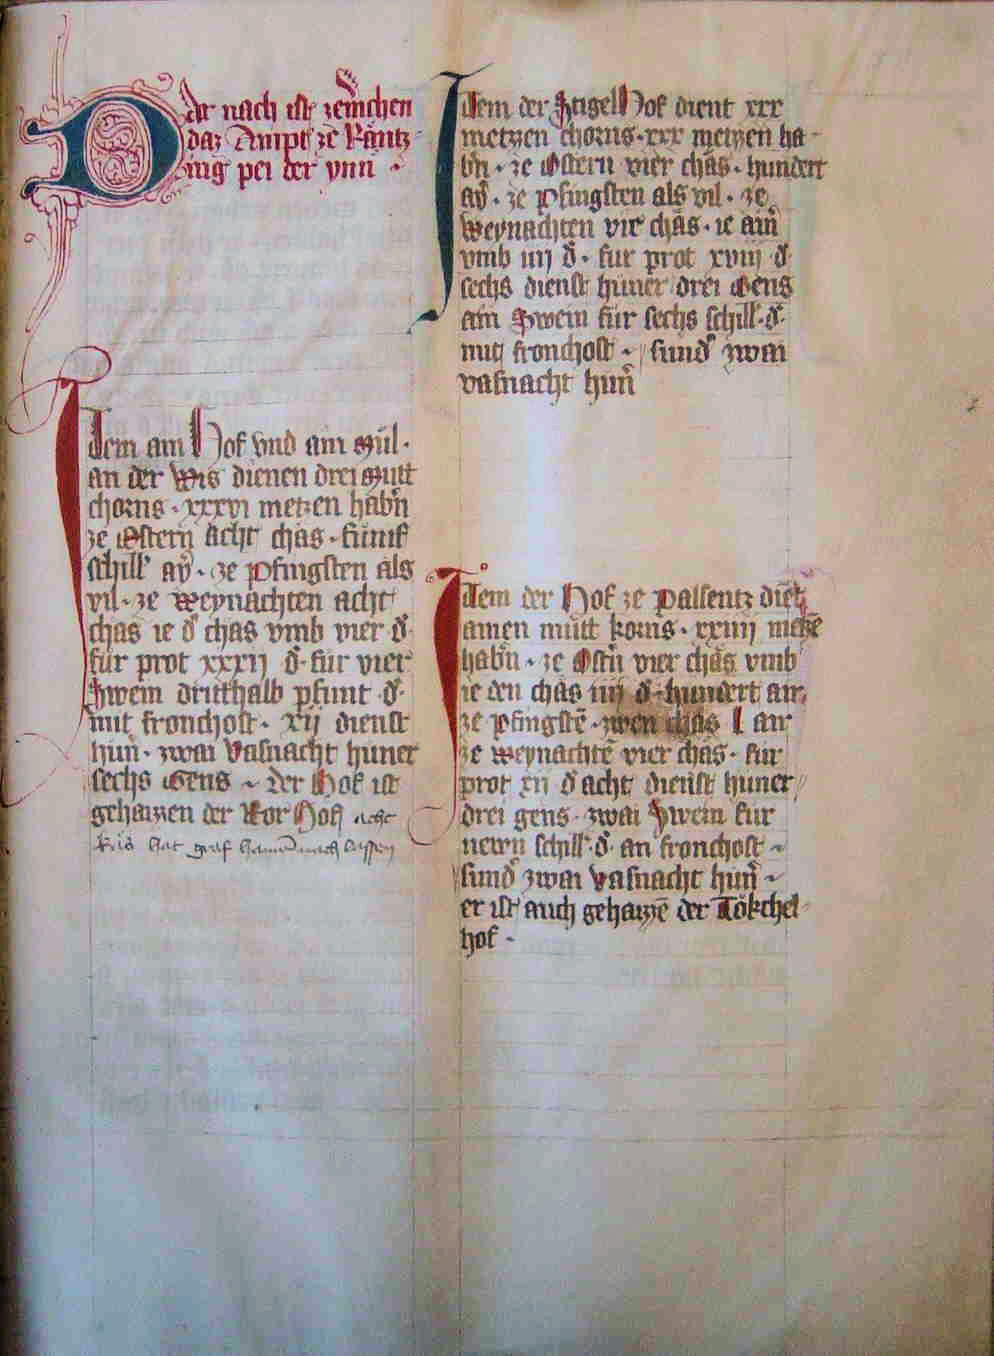 Dar nach ist ze merchen
daz Ampt ze Räntz-
ing pei der ynn ~
Item am Hof vnd am Mül·
an der Wis dienen drei Mutt
chorns · xxxvi metzen habrn
ze Ostern acht chäs · fumf
schill ayr · ze Pfingsten als
vil · ze weynachten acht
chäs ie d chäs vmb vier d·
für prot xxxij d · für vier
Swein dritthalb pfunt · d·
mit fronchost · xij dienst
hun̄ · zwai Vasnacht huner
sechs Gens ~ der Hof ist
gehaizzen der Vor Hof
hat graf
Item der Hof dient xxx
metzen chorns · xxx metzen ha-
brn̄ · ze Ostern vier chäs · hundert
ayr · ze Pfingsten als vil · ze
weynachten vir chäs · ie ain
vmb iiij d · fur prot xviij d·
sechs dienst hüner drei Gens
ain Swein für sechs schill · d·
mit fronchost ~ sund zwai
vasnacht hun̄
Item der Hof ze Passentz dient
ainen mutt korns · xxiiij metzē
habrn̄ · ze Ostrn̄ vier chäs vmb
ie den chäs iiij d · hundert air
ze pfingstē · zwen chäs l air
ze weynachtē vier chäs · für
prot xij d acht dienst huner
drei gens · zwai Swein für
newn schill · d· an fronchost ~
sund zwai Vasnacht hun̄ ~
er ist auch gehaizzē der Tökchel
hof ·